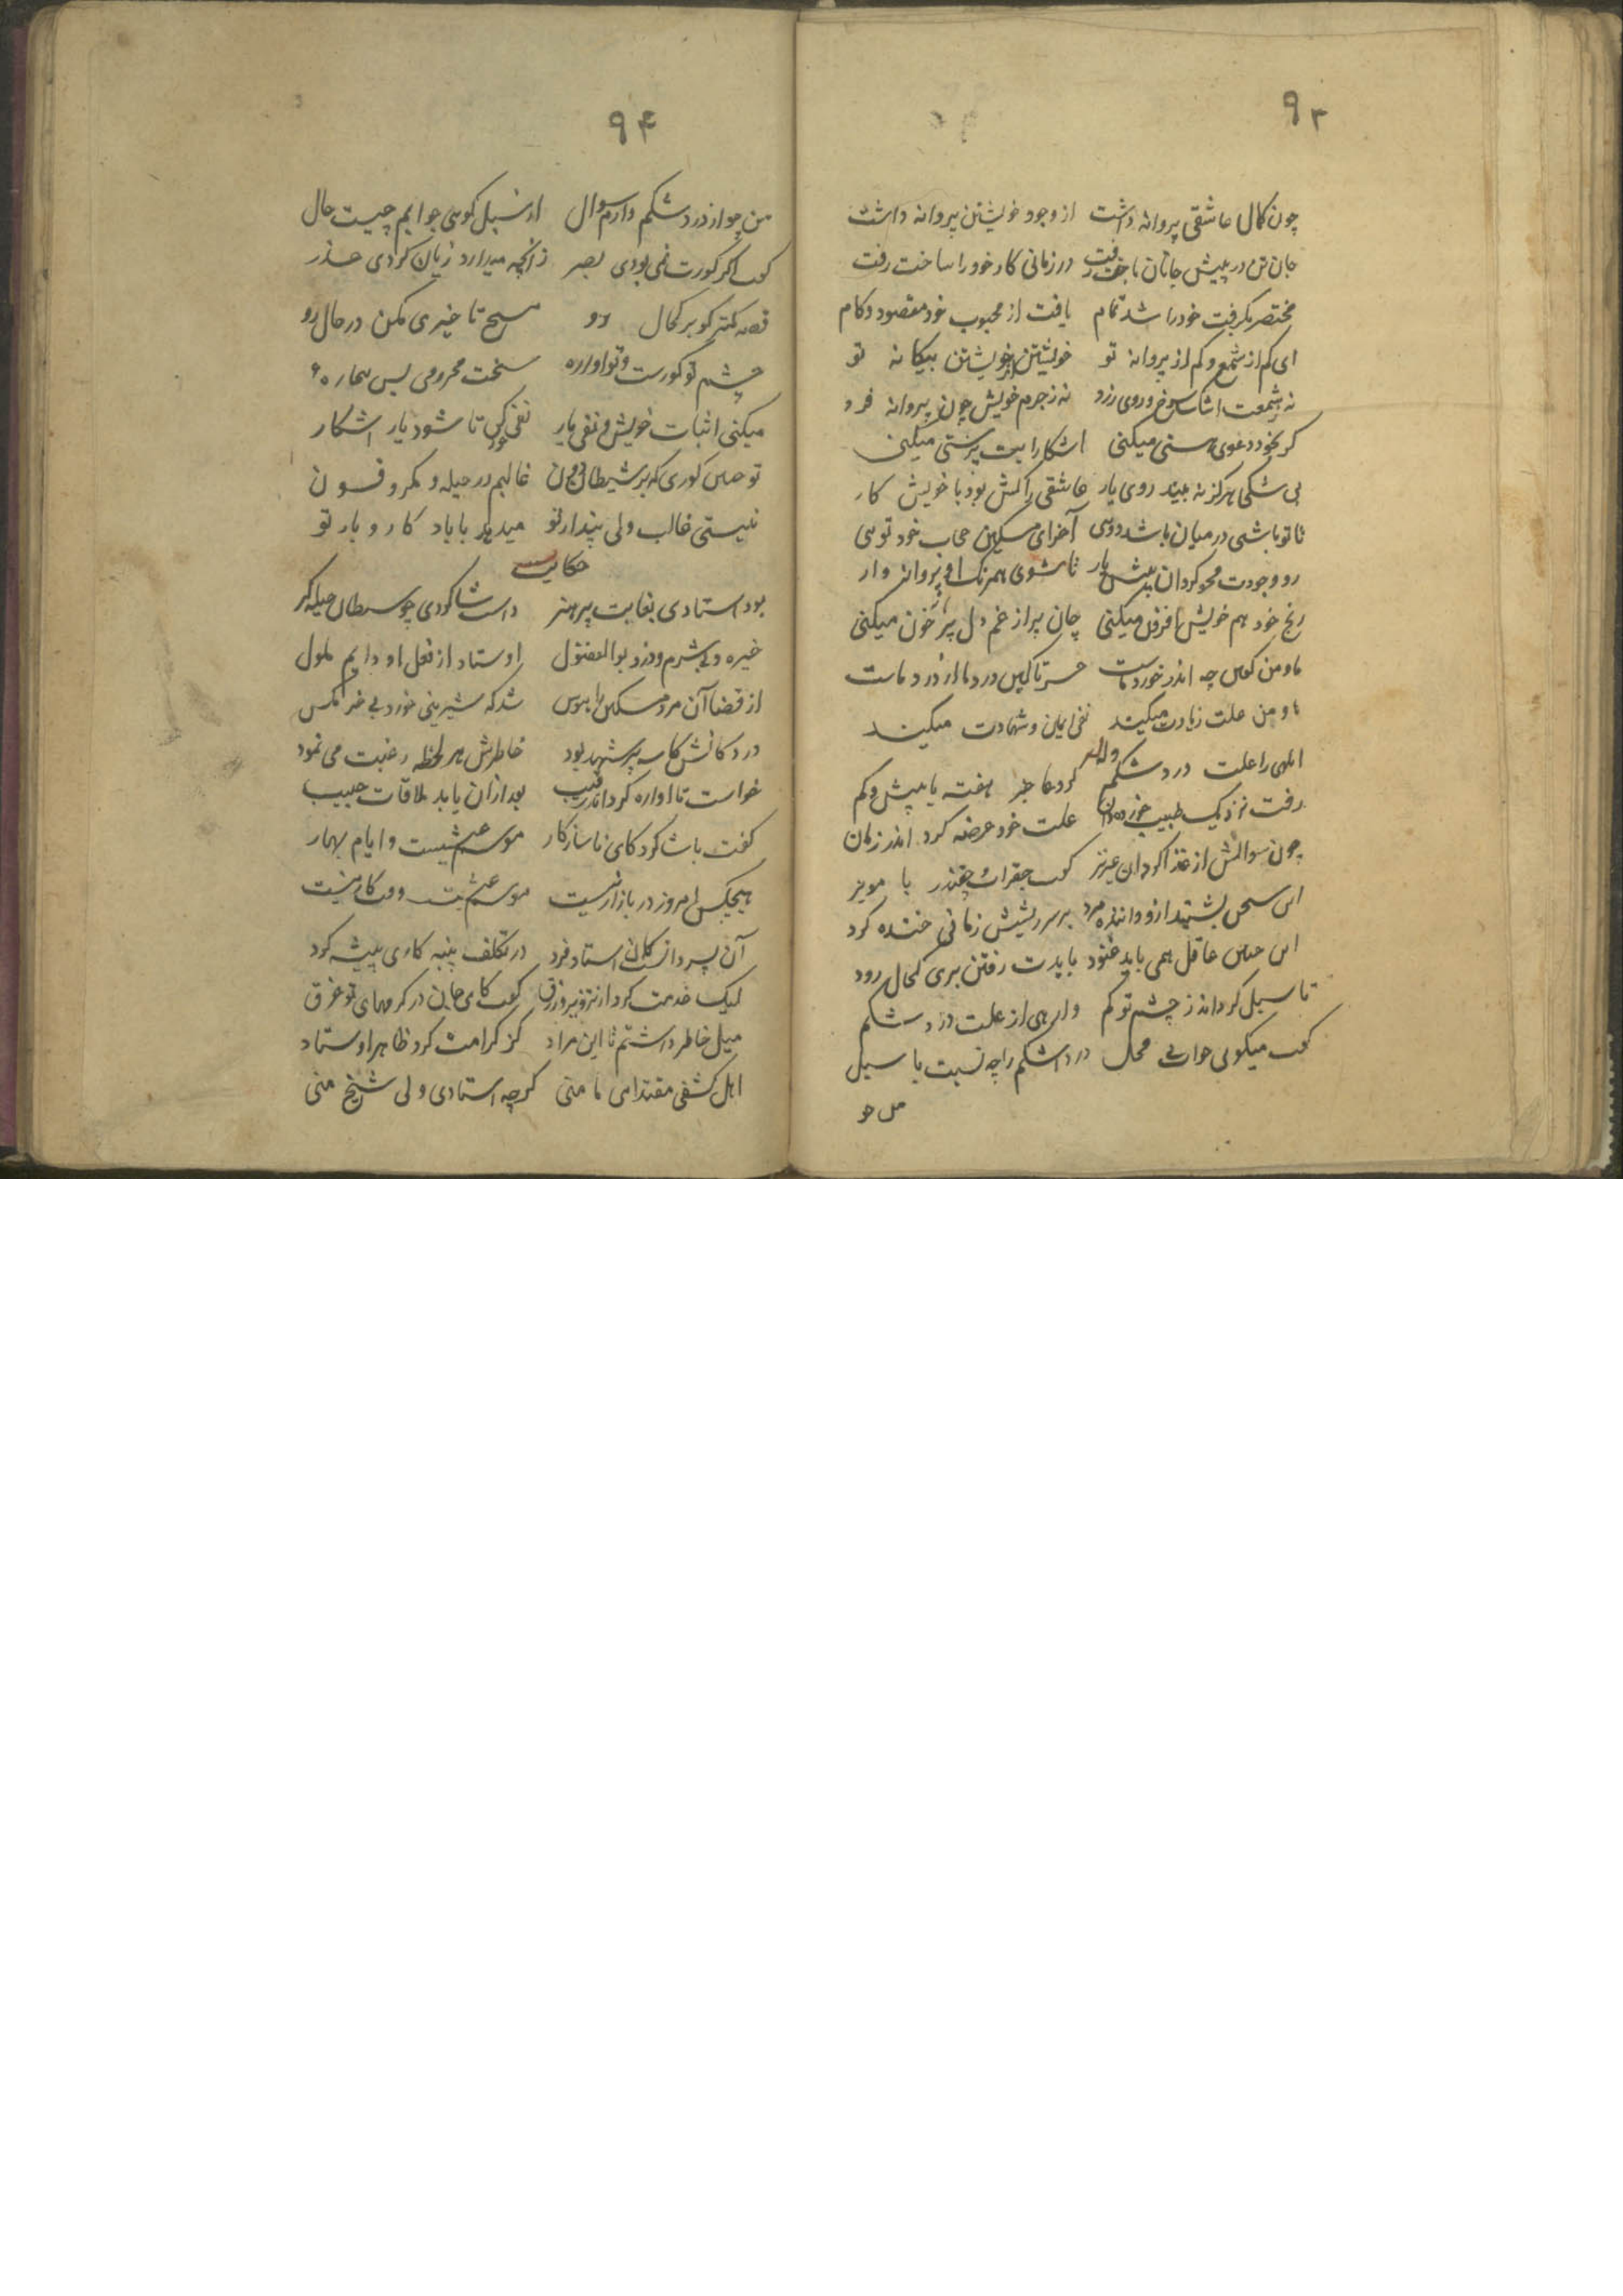 ۹۳
چون کمال عاشقی پروانه داشت از وجود خویشتن پروانه داشت
جان تن در پیش جانان باخت رفت در زمانی کار خود را ساخت رفت
مختصر بگرفت خود را شد تمام یافت از محبوب خود مقصود و کام
ای کم از شمع و کم از پروانه تو خویشتن از خویشتن بیکانه تو
نه چو شمعت روی زرد نه ز جرم خویش چون پروانه فرد
کر بخود دعوی هستی میکنی اشکارا بت پرستی میکنی
بی شکی هرکز نه بیند روی یار عاشقی کش بود با خویش کار
تا تو باشی در میان باشد دویی آخر ای مسکین حجاب خود تویی
رو وجودت محو کردان پیش یار تا شوی همرنک او پروانه وار
رنج خود هم خویش افزون میکنی جان پر از غم دل پر خون میکنی
ما و من کویی چه اندر خورد ماست سر تا درد ما از درد ماست
ما و من علت زیادت میکند نفی ایمان و شهادت میکند
ابلهی را علت درد شکم کرد عاجز هفته یا بیش و کم
رفت نزدیک طبیب خورده دان علت خود عرضه کرد اندر زمان
چون سوالش از غذا کرد ان عزیز کفت جقرات چقندر با مویز
این سخن بشنید ازو داننده مرد بر سر ریشش زمانی خنده کرد
این چنین عاقل همی باید غنود بایدت رفتن بری کحال زود
تا سبل کرداند ز چشم تو کم وارهی از علت درد شکم
کفت میکویی جوابی محل درد اشکم را چه نسبت با سبل
من چو
۹۴
من چو از درد شکم دارم سوال از سبل کویی جوابم چیست حال
کفت اکر کورت نمی بودی بصر زانچه میدارد زیان کردی حذر
قصه کمتر کو بر کحال رو هیچ تاخیری مکن در حال رو
چشم تو کورست و تو اواره سخت محرومی بس بیچاره
میکنی اثبات خویش و نفی یار نفی خود کن تا شود یار اشکار
تو چنین کوری که بر شیطان غالبم در حیله و مکر و فسون
نیستی غالب ولی پندار تو میدهد با باد کار و بار تو
حکایت
بود استادی بغایت پر هنر داشت شاکردی چو شیطان حیله کر
خیره و بی شرم و دزد بوالفضول اوستاد از فعل او دایم ملول
از قضا آن مرد مسکین را هوس شد که شیرینی خورد بی خرمکس
در دکانش کاسه پر شهد بود خاطرش هر لحظه رغبت می نمود
خواست تا اواره کرداند رقیب بعد ازان یابد ملاقات حبیب
کفت با شاکرد کای ناسازکار موسم عیشست و ایام بهار
هیچکس امروز در بازار نیست موسم عیشست وقت کار نیست
آن پسر دانست کان استاد فرد در تکلف پنبه کاری پیشه کرد
لیک خدمت کرد از تزویر و زرق کفت کای جان در کرمهای تو غرق
میل خاطر داشتم تا این مراد کز کرامت کرد ظاهر اوستاد
اهل کشفی مقتدای ما منی کرچه استادی ولی شیخ منی